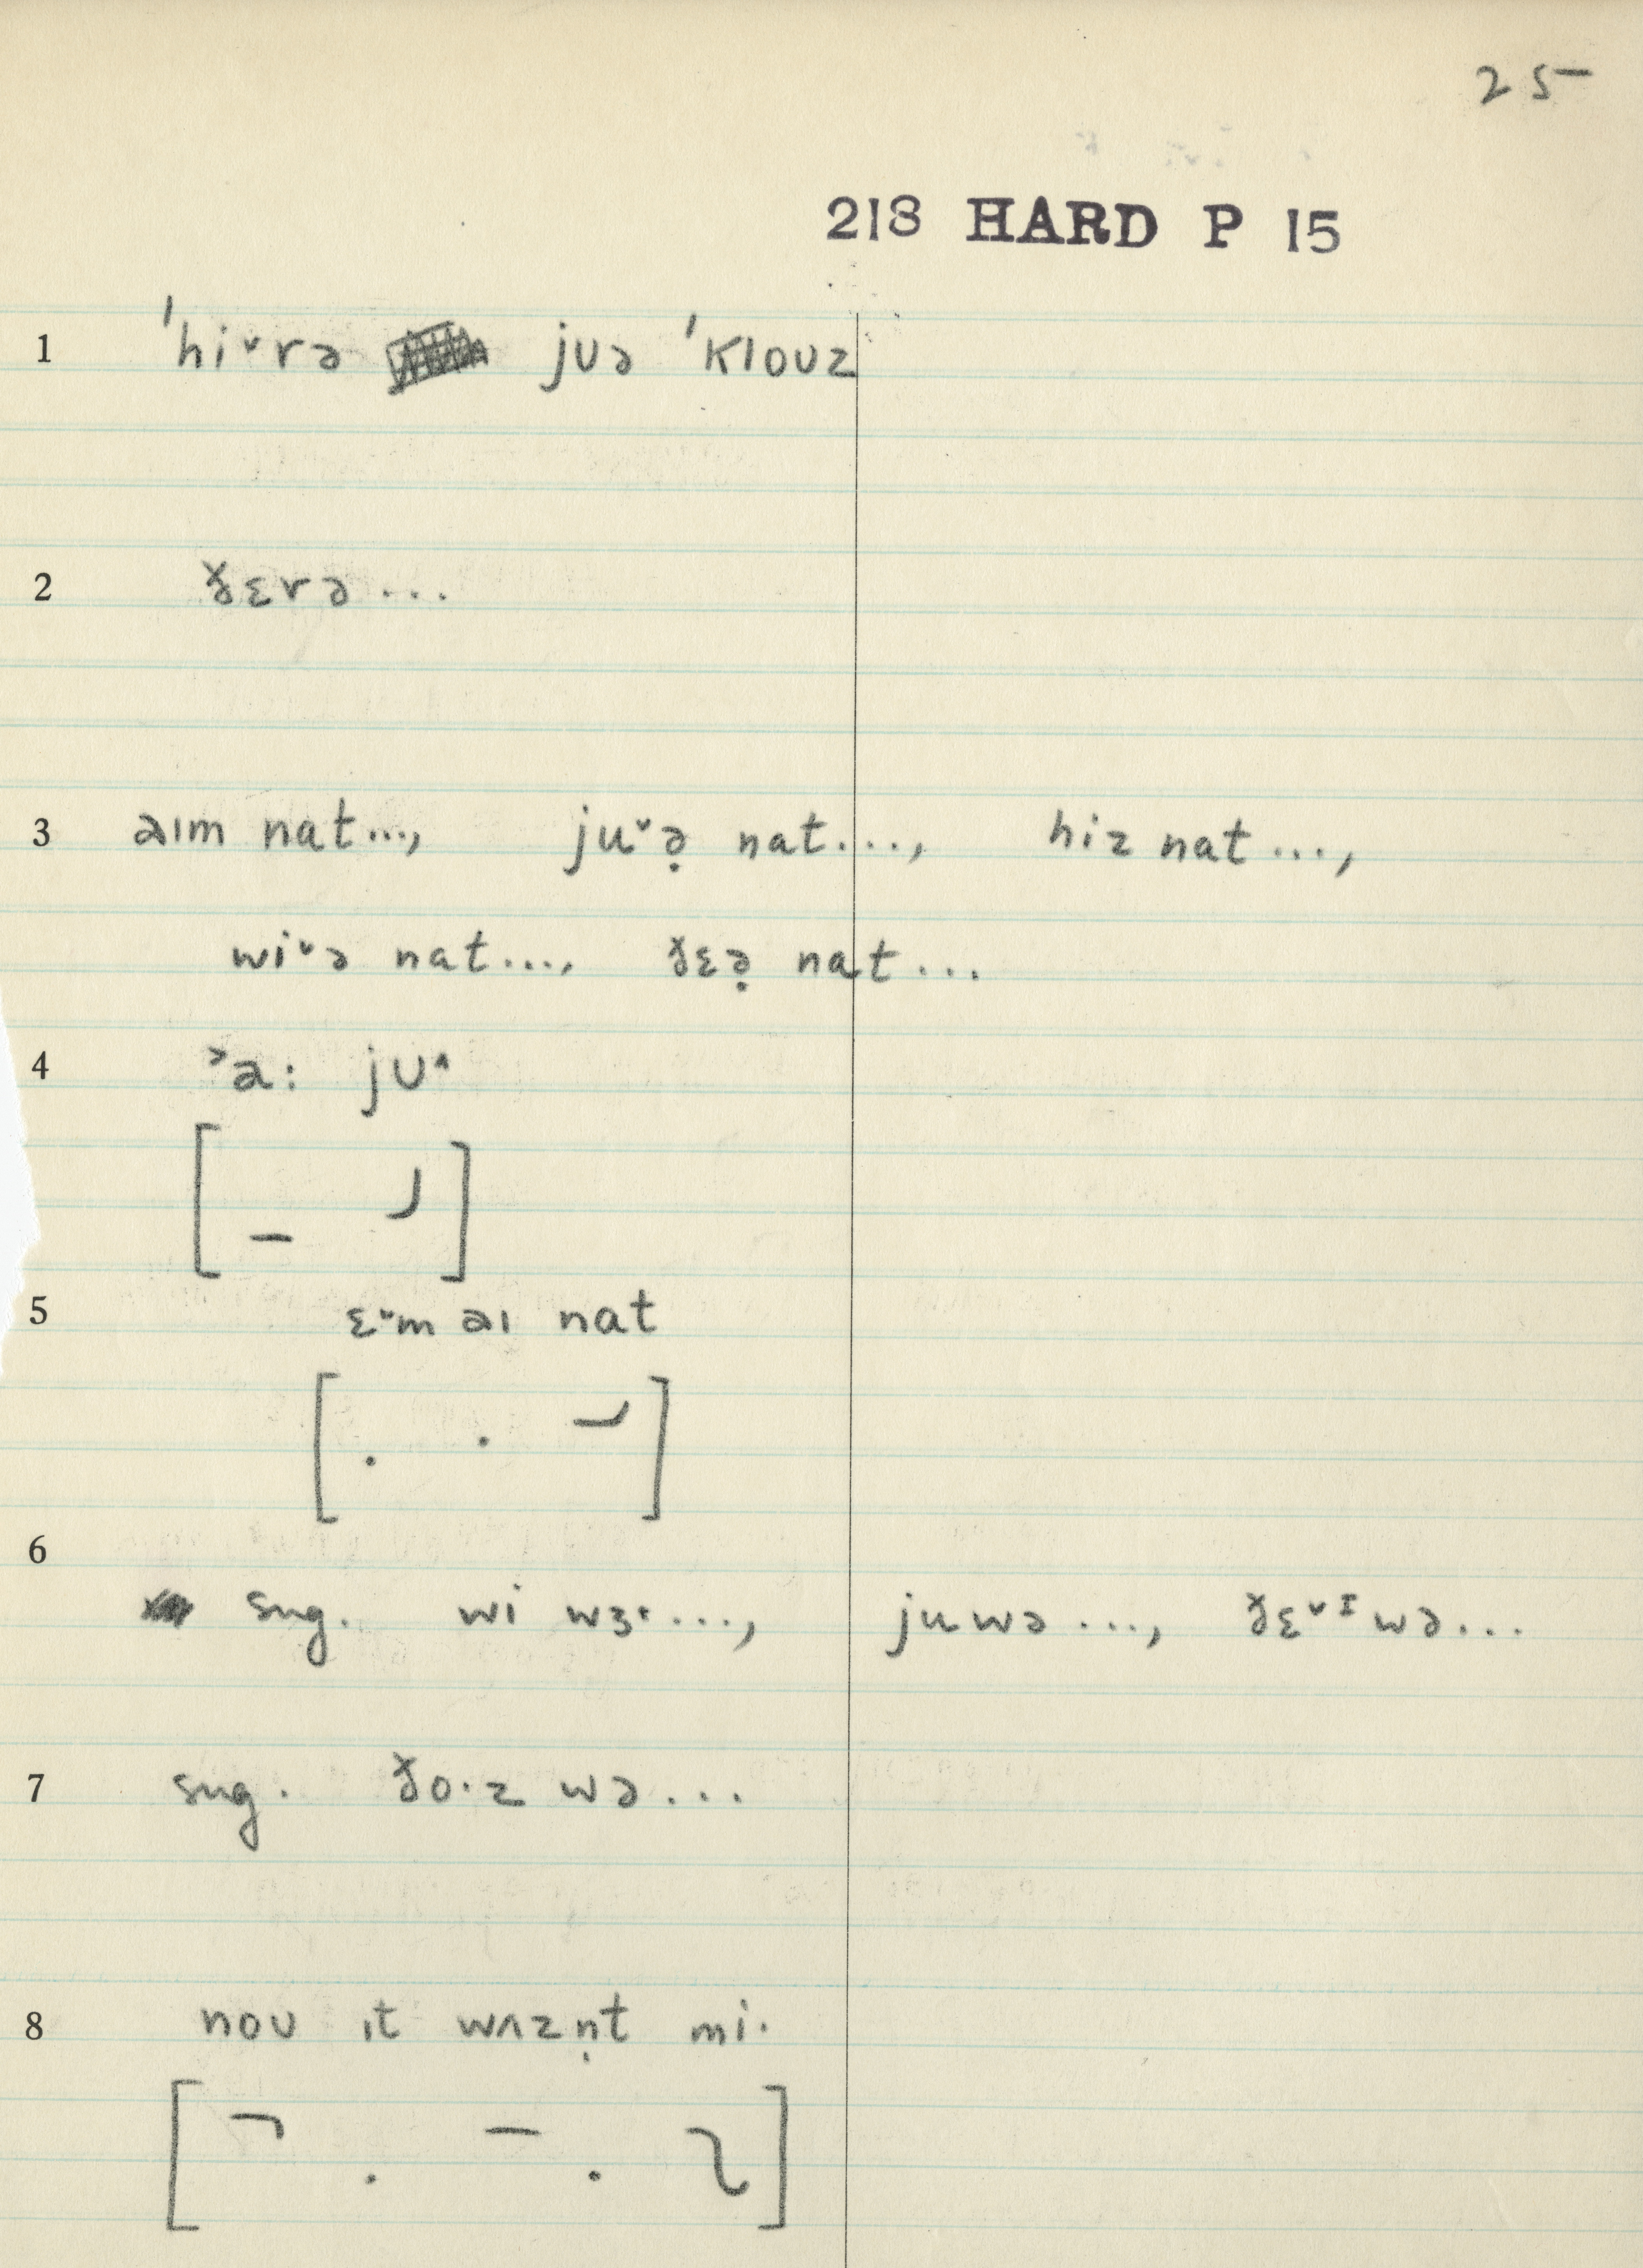 25
218 HARD P 15
1 ˈhi˅rə jʊə ˈklouz
2 ðɛrə ...
3 aɪm nat..., ju˅ə̣ nat...., hiz nat ...,
wi˅ə nat...., ðɛə̣ nat ...
4 ˃a: jʊ˄
5 ɛ˅m aɪ nat
6
sug. wi wɜ˞...., juwə ..., ðɛ˅ɪwə...
7 sug. ðo·z wə...
8 noʊ ɪt wʌzṇt mi·